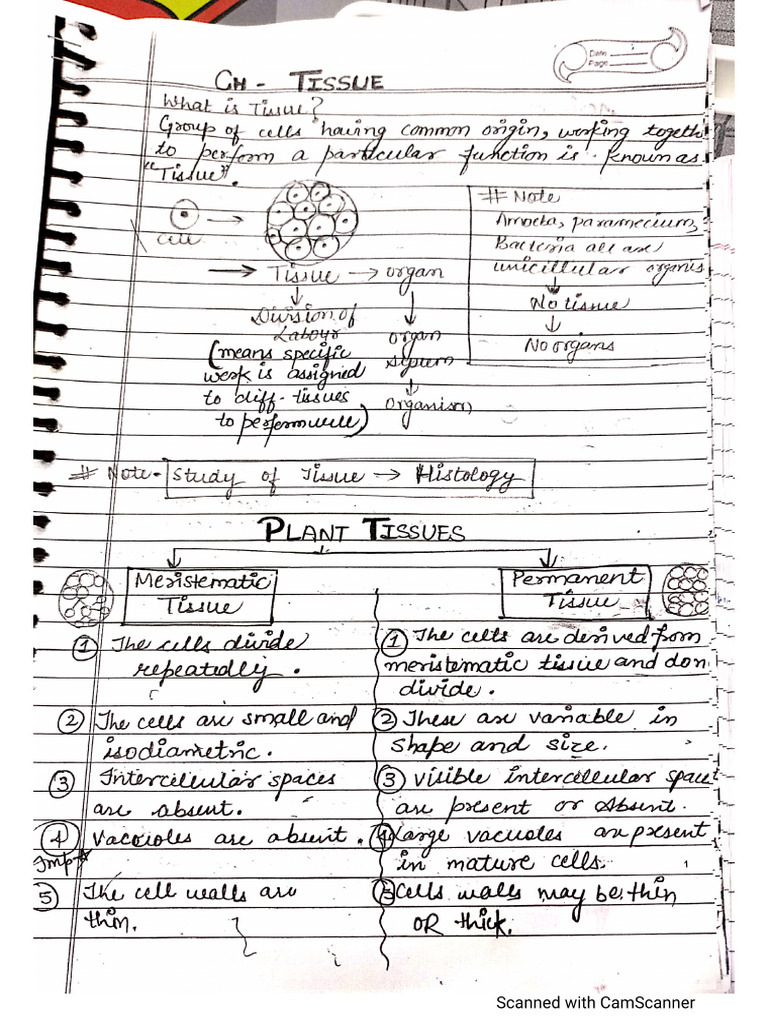 Date
Page
CH - TISSUE
What is Tissue?
Group of cells having common origin, working togeth
to perform a particular function is known as
"Tissue".
cell
→ Tissue → organ
↓
Division of
Labour
(means specific
work is assigned
to diff- tissues
to perform well)
↓
organ
system
↓
organism
# Note
Amoeba, paramecium,
Bacteria all are
unicillular organis
↓
No tissue
↓
No organs
# Note - Study of Tissue → Histology
PLANT TISSUES
Meristematic
Tissue
① The cells divide
repeatedly.
② The cells are small and
isodiametric.
③ Intercellular spaces
are absent.
④ Vacouoles are absent.
Imp
⑤ The cell walls are
thin.
Permanent
Tissue
① The cells are derived from
meristematic tissue and don
divide.
② These are variable in
shape and size.
③ visible intercellular space
are present or absent.
④ Large vacuoles are present
in mature cells.
⑤ Cells walls may be thin
OR thick.
Scanned with CamScanner